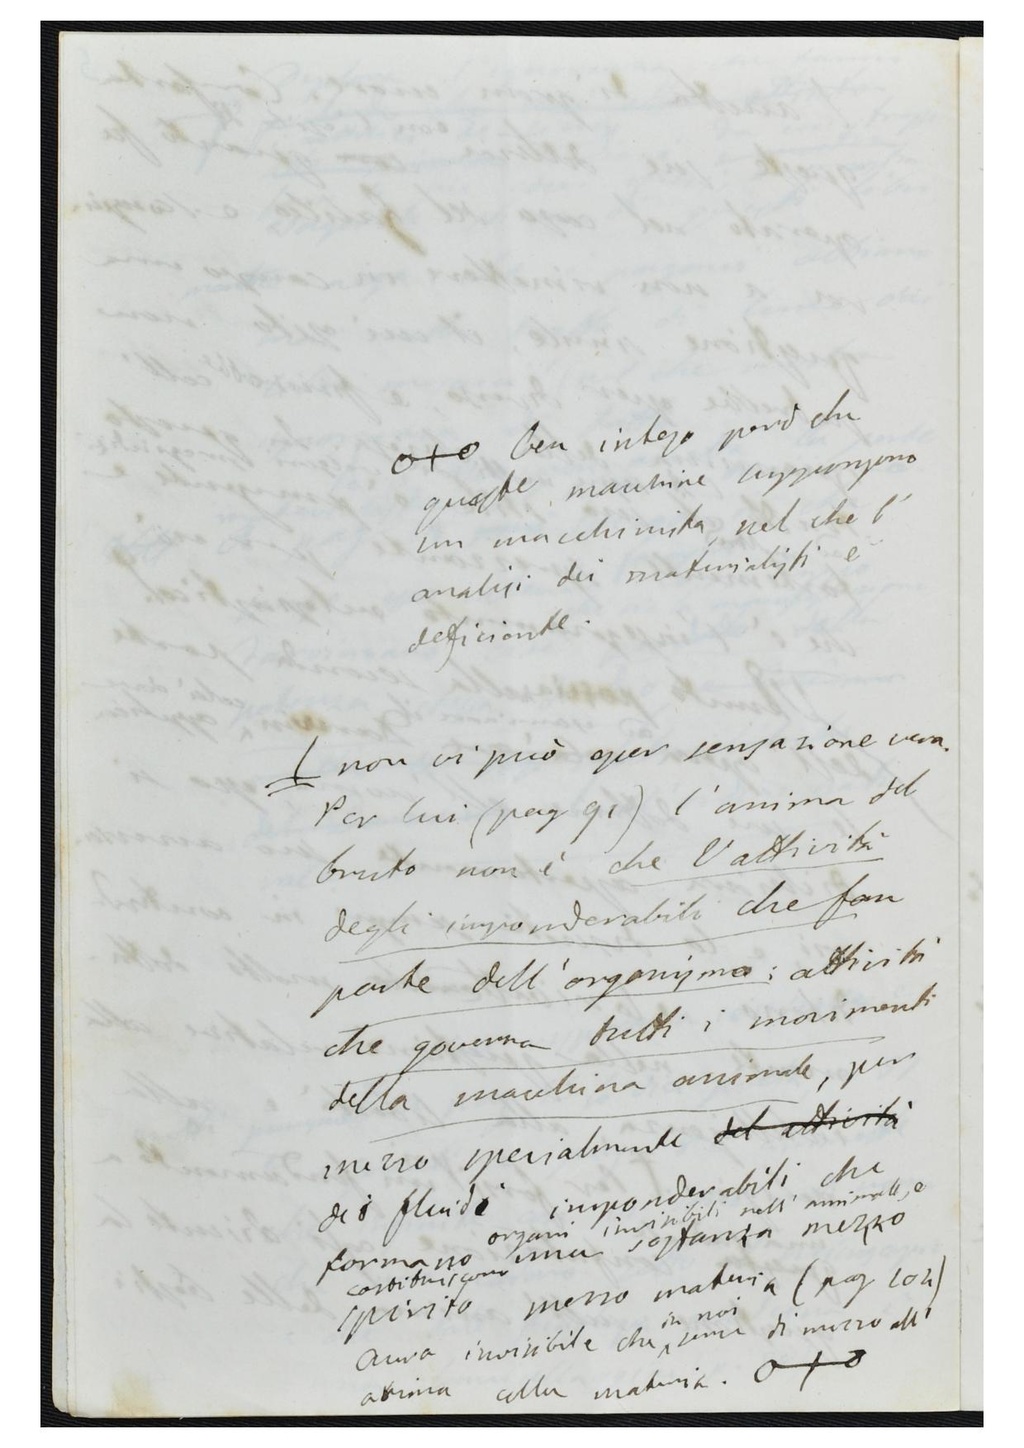 o+o ben inteso però che
queste macchine suppongono
un macchinista, nel che l'
analisi dei materialisti è
deficiente.
non vi può esser sensazione vera.
Per lui (pag 91) l'anima del
bruto non è che l'attività
degli imponderabili che fan
parte dell'organismo: attività
che governa tutti i movimenti
della macchina animale, per
mezzo specialmente del attività
dei fluidi imponderabili che
organi invisibili nell'animale, e
formano una sostanza mezzo
costituiscono
spirito mezzo materia (pag 102)
in noi
aura invisibile che serve di mezzo all'
anima colla materia. o+o